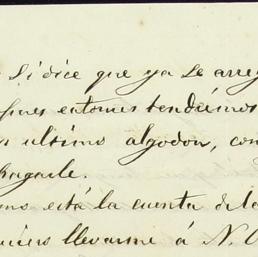 Si dice que ya se arreg
pues entonces tendremos
ultimo algodon, con
Pagarle.
está la cuenta de la
quiero llevarme á N. O